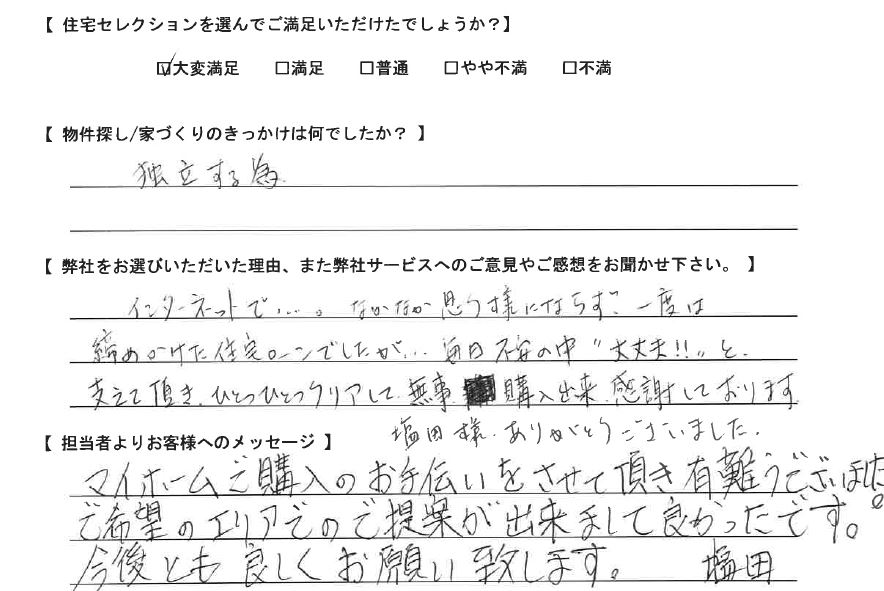 【 住宅セレクションを選んでご満足いただけたでしょうか？】
☑大変満足 □満足 □普通 □やや不満 □不満
【 物件探し/家づくりのきっかけは何でしたか？ 】
独立する為
【 弊社をお選びいただいた理由、また弊社サービスへのご意見やご感想をお聞かせ下さい。 】
インターネットで…。なかなか思う様にならず、一度は
締めかけた住宅ローンでしたが… 毎日不安の中"大丈夫!!"と、
支えて頂き、ひとつひとつクリアして、無事 購入出来、感謝しております
塩田様、ありがとうございました。
【 担当者よりお客様へのメッセージ 】
マイホームご購入のお手伝いをさせて頂き有難うございました。
ご希望のエリアでのご提案が出来まして良かったです。
今後とも良しくお願い致します。 塩田